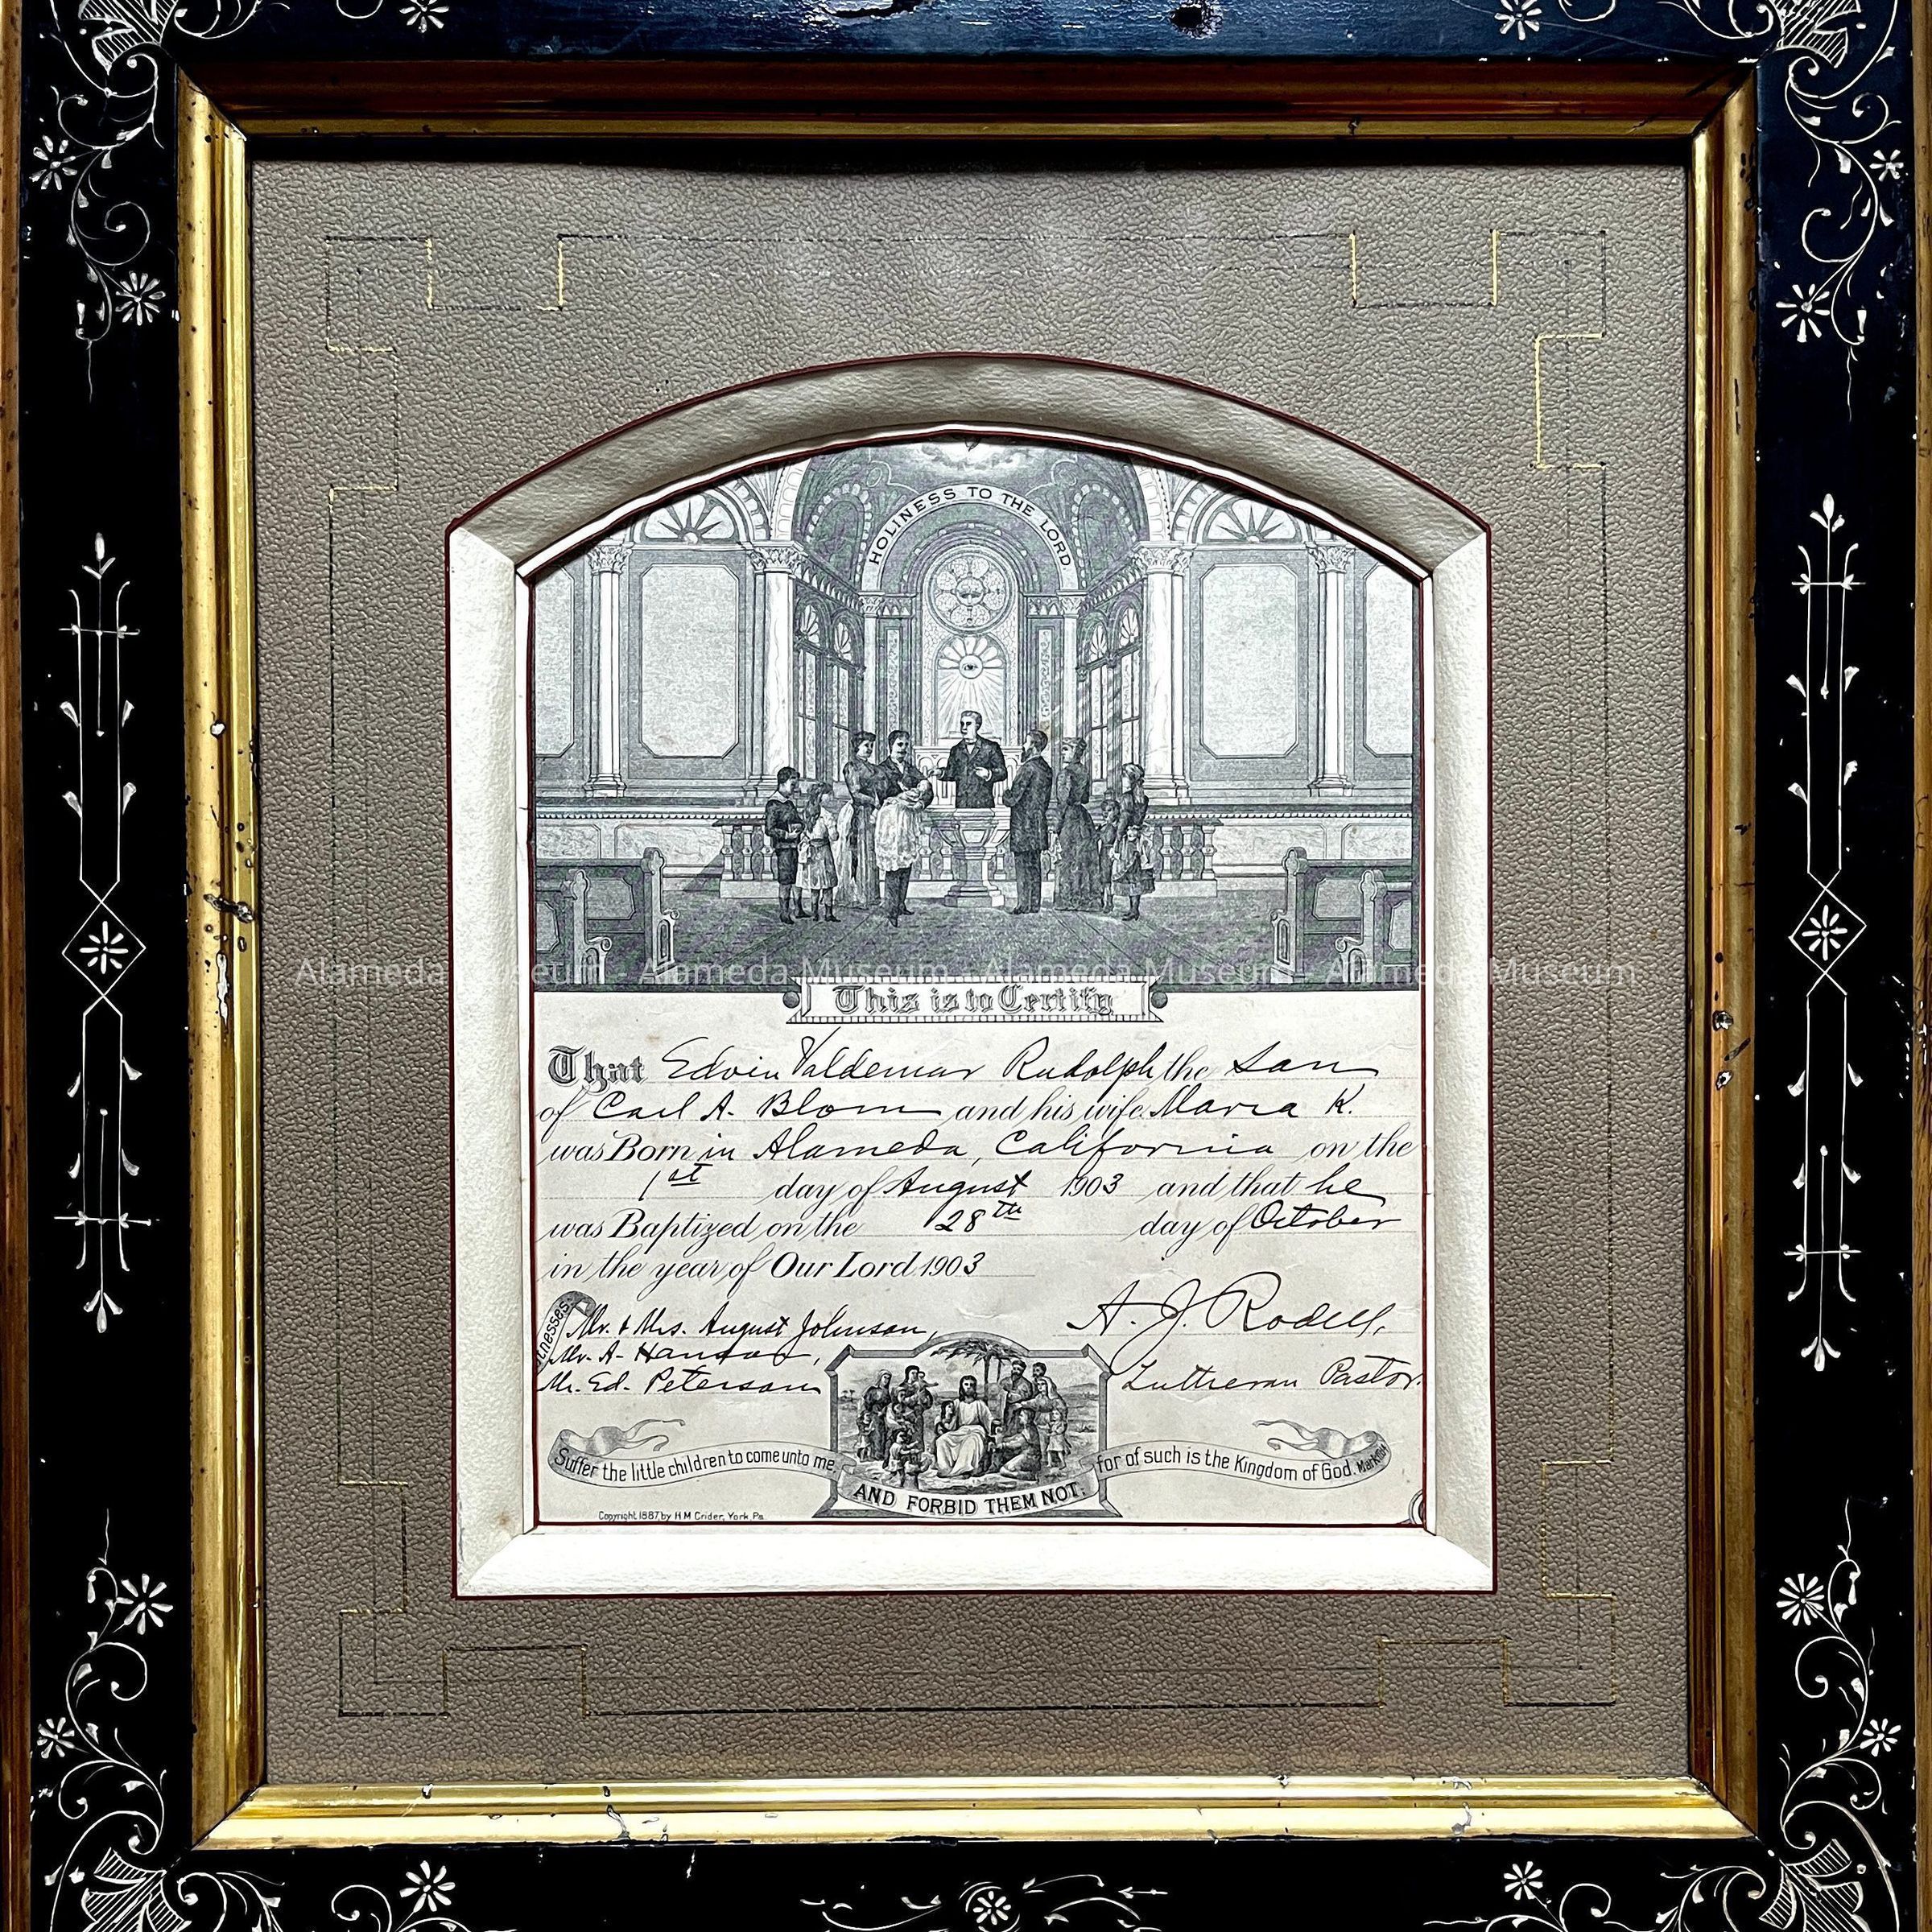 HOLINESS TO THE LORD
Alameda Museum - Alameda Museum - Alameda Museum - Alameda Museum
This is to Certify
That Edvin Valdemar Rudolph the Son
of Carl A. Blom and his wife Maria K.
was Born in Alameda, California on the
1st day of August 1903 and that he
was Baptized on the 28th day of October
in the year of Our Lord 1903
Mr. & Mrs. August Johnson,
Mr. A. Hanson,
Mr. Ed. Peterson
A. J. Rodell,
Lutheran Pastor.
Suffer the little children to come unto me,
AND FORBID THEM NOT:
for of such is the Kingdom of God.
Copyright 1887 by H M Crider, York Pa